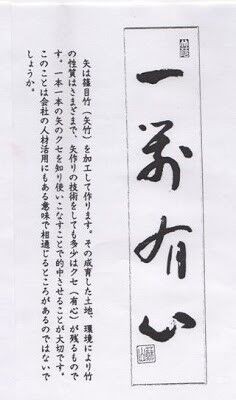 一箭有心
矢は篠目竹（矢竹）を加工して作ります。その成育した土地、環境により竹
の性質はさまざまで、矢作りの技術をしても多少はクセ（有心）が残るもので
す。一本一本の矢のクセを知り使いこなすことで的中させることが大切です。
このことは会社の人材活用にもある意味で相通じるところがあるのではないで
しょうか。